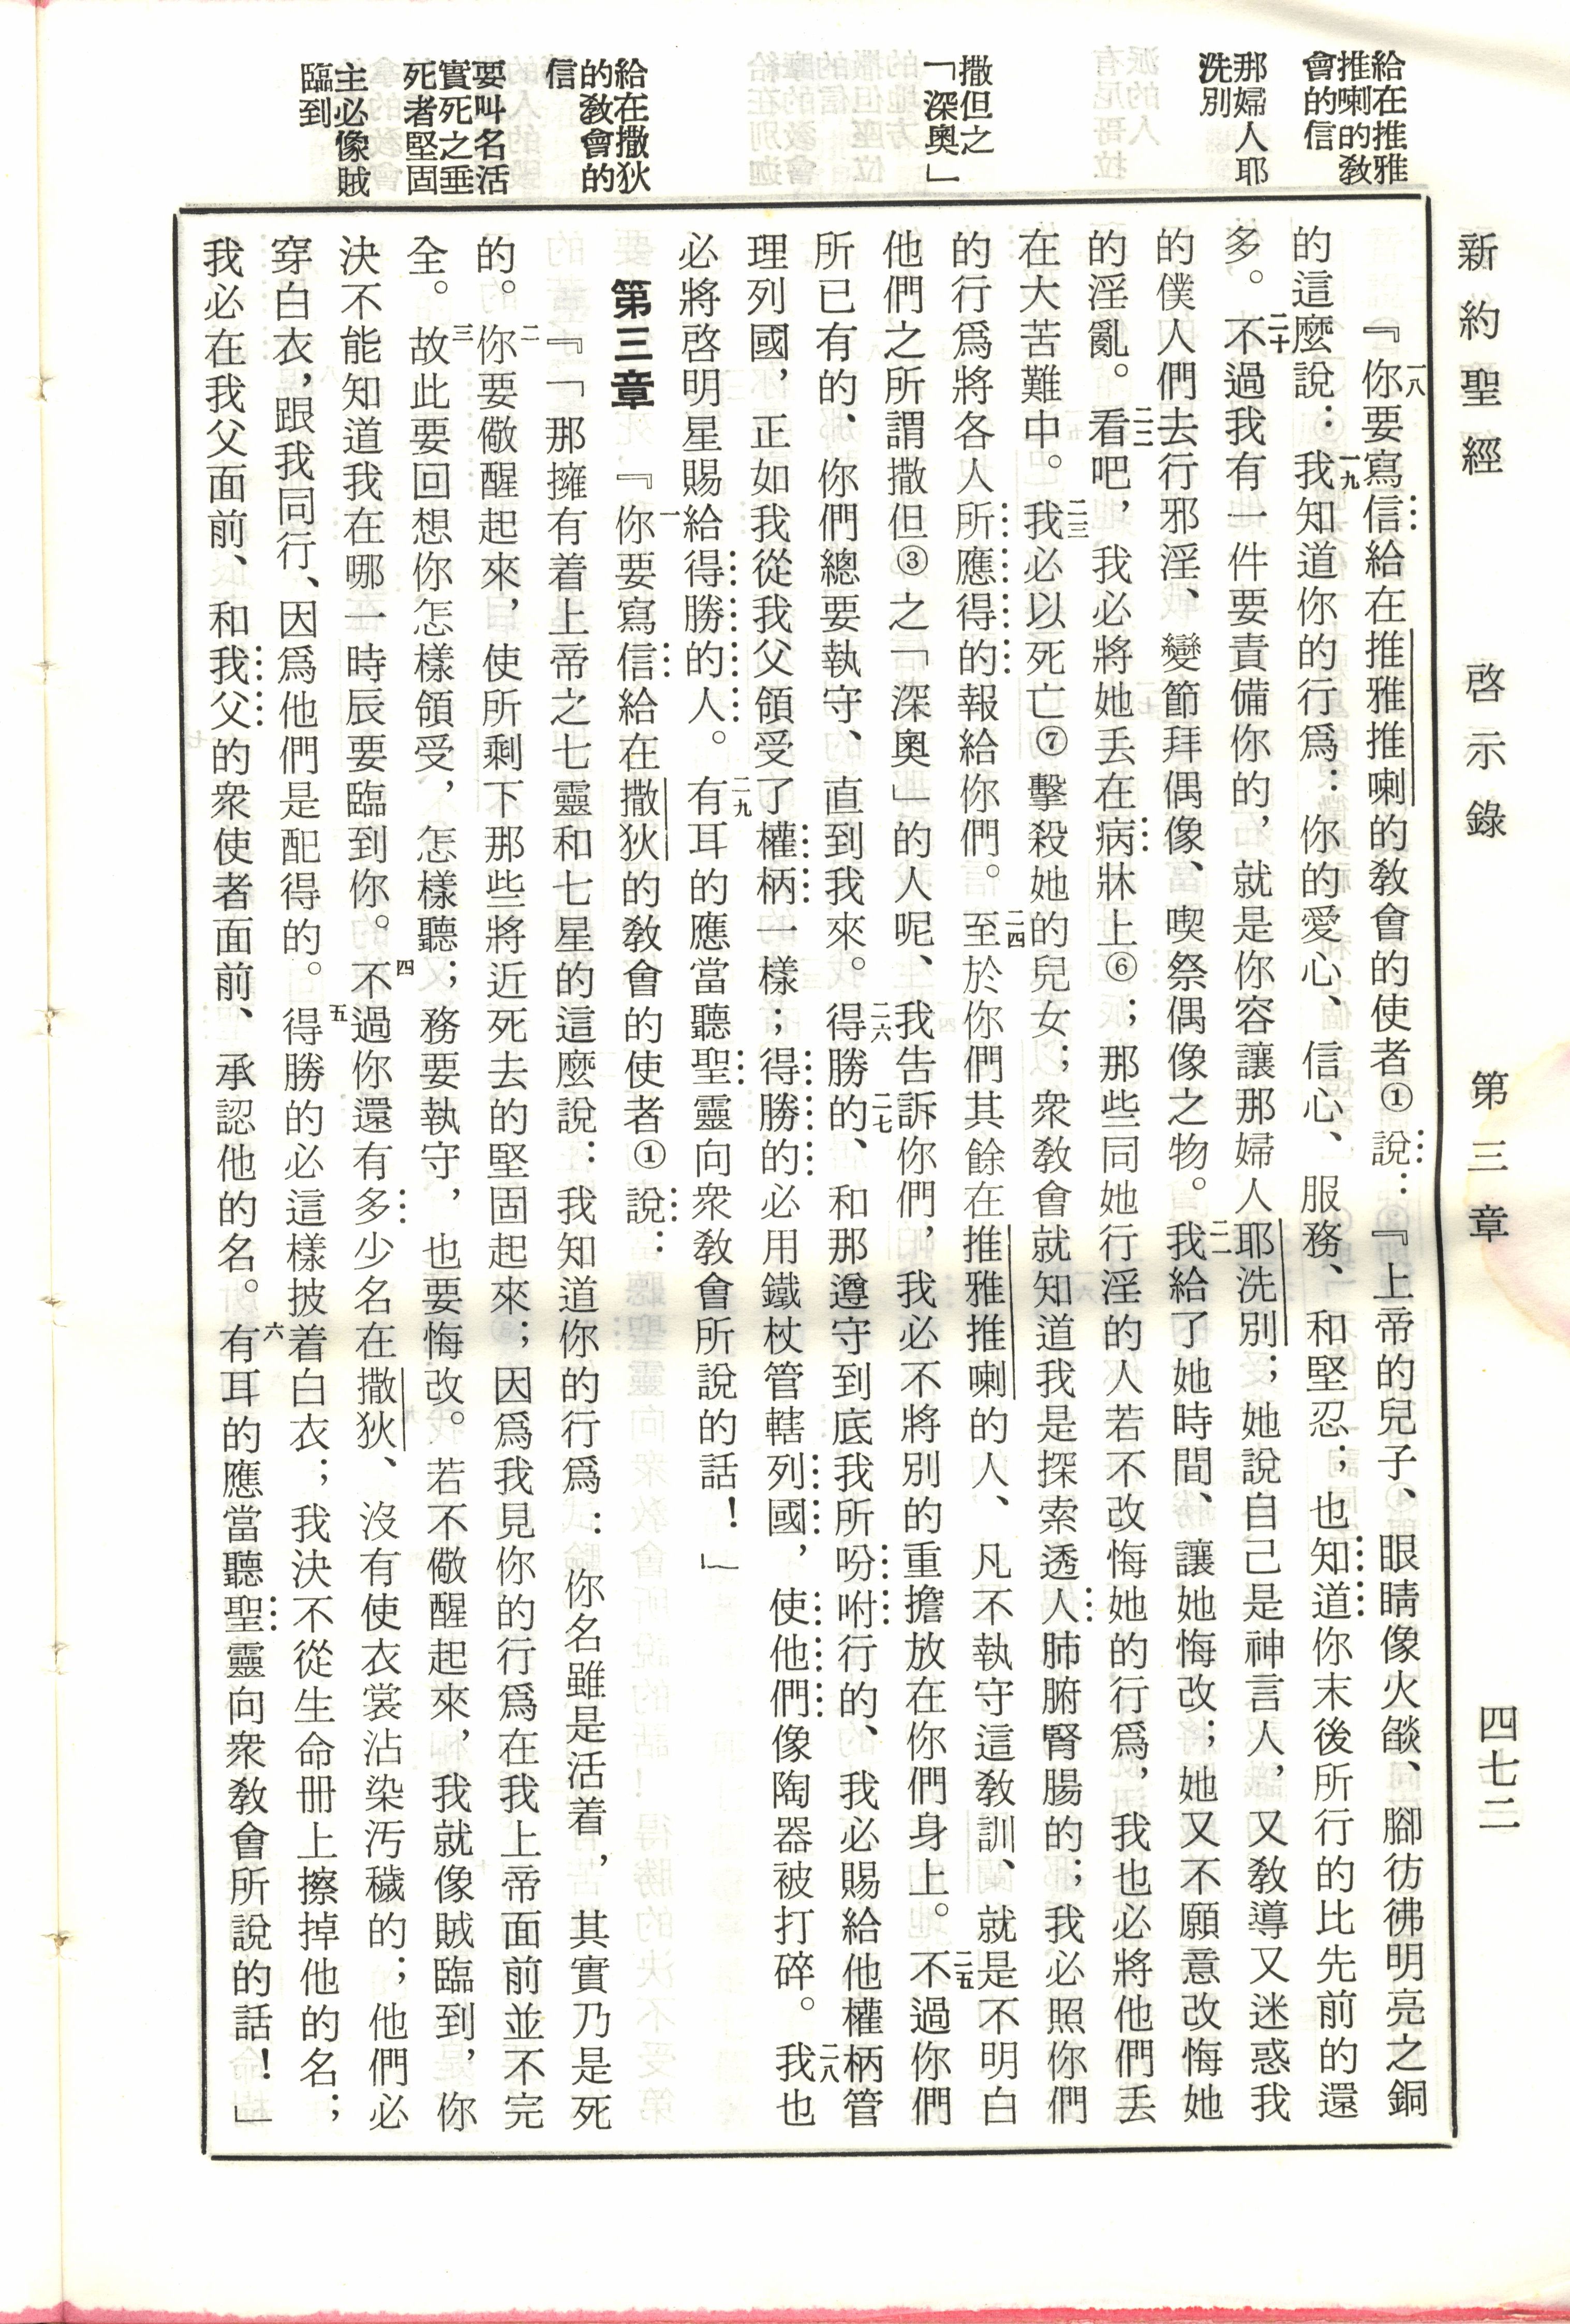 新約聖經　啓示錄　第三章　四七二
給在推雅
推喇的敎
會的信
那婦人耶
洗別
撒但之
「深奧」
給在撒狄
的敎會的
信
要叫名活
實死之垂
死者堅固
主必像賊
臨到
一八『你要寫信給在推雅推喇的敎會的使者①說：『上帝的兒子、眼睛像火燄、腳彷彿明亮之銅
的這麼說：一九我知道你的行爲：你的愛心、信心、服務、和堅忍；也知道你末後所行的比先前的還
多。二十不過我有一件要責備你的，就是你容讓那婦人耶洗別；她說自己是神言人，又敎導又迷惑我
的僕人們去行邪淫、變節拜偶像、喫祭偶像之物。二一我給了她時間、讓她悔改；她又不願意改悔她
的淫亂。二二看吧，我必將她丟在病牀上⑥；那些同她行淫的人若不改悔她的行爲，我也必將他們丟
在大苦難中。二三我必以死亡⑦擊殺她的兒女；衆敎會就知道我是探索透人肺腑腎腸的；我必照你們
的行爲將各人所應得的報給你們。二四至於你們其餘在推雅推喇的人、凡不執守這敎訓、就是不明白
他們之所謂撒但③之「深奧」的人呢、我告訴你們，我必不將別的重擔放在你們身上。二五不過你們
所已有的、你們總要執守、直到我來。二六得勝的、二七和那遵守到底我所吩咐行的、我必賜給他權柄管
理列國，正如我從我父領受了權柄一樣；得勝的必用鐵杖管轄列國，使他們像陶器被打碎。二八我也
必將啓明星賜給得勝的人。二九有耳的應當聽聖靈向衆敎會所說的話！」
第三章　一『你要寫信給在撒狄的敎會的使者①說：
『「那擁有着上帝之七靈和七星的這麼說：我知道你的行爲：你名雖是活着，其實乃是死
的。二你要儆醒起來，使所剩下那些將近死去的堅固起來；因爲我見你的行爲在我上帝面前並不完
全。三故此要回想你怎樣領受，怎樣聽；務要執守，也要悔改。若不儆醒起來，我就像賊臨到，你
決不能知道我在哪一時辰要臨到你。四不過你還有多少名在撒狄、沒有使衣裳沾染汚穢的；他們必
穿白衣，跟我同行、因爲他們是配得的。五得勝的必這樣披着白衣；我決不從生命冊上擦掉他的名；
我必在我父面前、和我父的衆使者面前、承認他的名。六有耳的應當聽聖靈向衆敎會所說的話！」